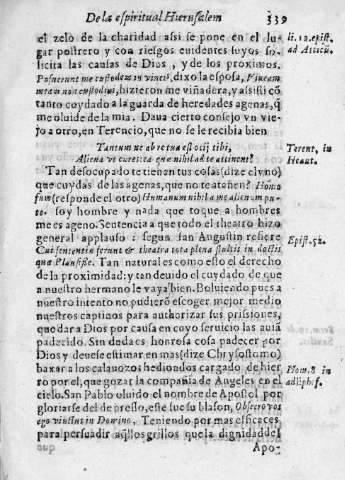 De la espiritual Hierusalem 339
el zelo de la charidad assi se pone en el lu-
gar postrero y con riesgos euidentes suyos so-
licita las causas de Dios, y de los proximos.
Posuerunt me custodem in vineis, dixo la esposa, Vineam
meam non custodiui, hizieron me viñadera, y assisti cō
tanto cuydado a la guarda de heredades agenas, q̄
me oluide de la mia. Daua cierto consejo vn vie-
jo a otro, en Terencio, que no se le recibia bien
Tantum ne ab re tua est ocij tibi,
Aliena vt cures; ea que nihil ad te attinent?
Tan desocupado te tienan tus cosas (dize el vno)
que cuydas de las agenas, que no te atañen? Homo
sum (responde el otro) Humanum nihil a me alienum pu-
to. soy hombre y nada que toque a hombres
me es ageno. Sentencia a que todo el theatro hizo
general applauso: segun san Augustin refiere
Cui sententie ferunt & theatra tota plena stultis in doctis
que Plausisse. Tan natural es como esto el derecho
de la proximidad: y tan deuido el cuydado de que
a nuestro hermano le vaya bien. Boluiendo pues a
nuestro intento no pudierō escoger mejor medio
nuestros captiuos para authorizar sus prissiones,
que dar a Dios por causa en cuyo seruicio las auiā
padecido. Sin duda es honrosa cosa padecer por
Dios y deuese estimar en mas (dize Chrysostomo)
baxar a los calauozos hediondos cargado de hier
ro por el, que gozar la compañia de Angeles en el
cielo. San Pablo oluido el nombre de Apostol por
gloriarse del de presso, este fue su blason, Obsecro vos
ego vinctus in Domino, Teniendo por mas efficaces
para persuadir aq̄llos grillos que la dignidad del
Apo-
li. 12. epist.
ad Atticū.
Terent. in
Heaut.
Epist. 52.
Hom. 8 in
ad Eph. s.